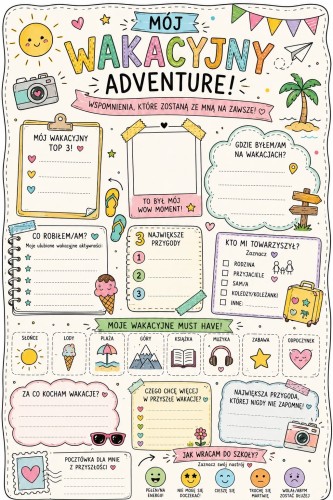 MÓJ
WAKACYJNY
ADVENTURE!
WSPOMNIENIA, KTÓRE ZOSTANĄ ZE MNĄ NA ZAWSZE!
MÓJ WAKACYJNY
TOP 3!
TO BYŁ MÓJ
WOW MOMENT!
GDZIE BYŁEM/AM
NA WAKACJACH?
CO ROBIŁEM/AM?
Moje ulubione wakacyjne aktywności
3 NAJWIĘKSZE
PRZYGODY
1
2
3
KTO MI TOWARZYSZYŁ?
Zaznacz
RODZINA
PRZYJACIELE
SAM/A
KOLEDZY/KOLEŻANKI
INNE:
MOJE WAKACYJNE MUST HAVE!
SŁOŃCE
LODY
PLAŻA
GÓRY
KSIĄŻKA
MUZYKA
ZABAWA
ODPOCZYNEK
ZA CO KOCHAM WAKACJE?
CZEGO CHCĘ WIĘCEJ
W PRZYSZŁE WAKACJE?
NAJWIĘKSZA PRZYGODA,
KTÓREJ NIGDY NIE ZAPOMNĘ!
POCZTÓWKA DLA MNIE
Z PRZYSZŁOŚCI
JAK WRACAM DO SZKOŁY?
Zaznacz swój nastrój
PEŁEN/NA
ENERGII!
NIE MOGĘ SIĘ
DOCZEKAĆ!
CIESZĘ
SIĘ!
TROCHĘ SIĘ
MARTWIĘ.
WOLAŁ/ABYM
ZOSTAĆ DŁUŻEJ!